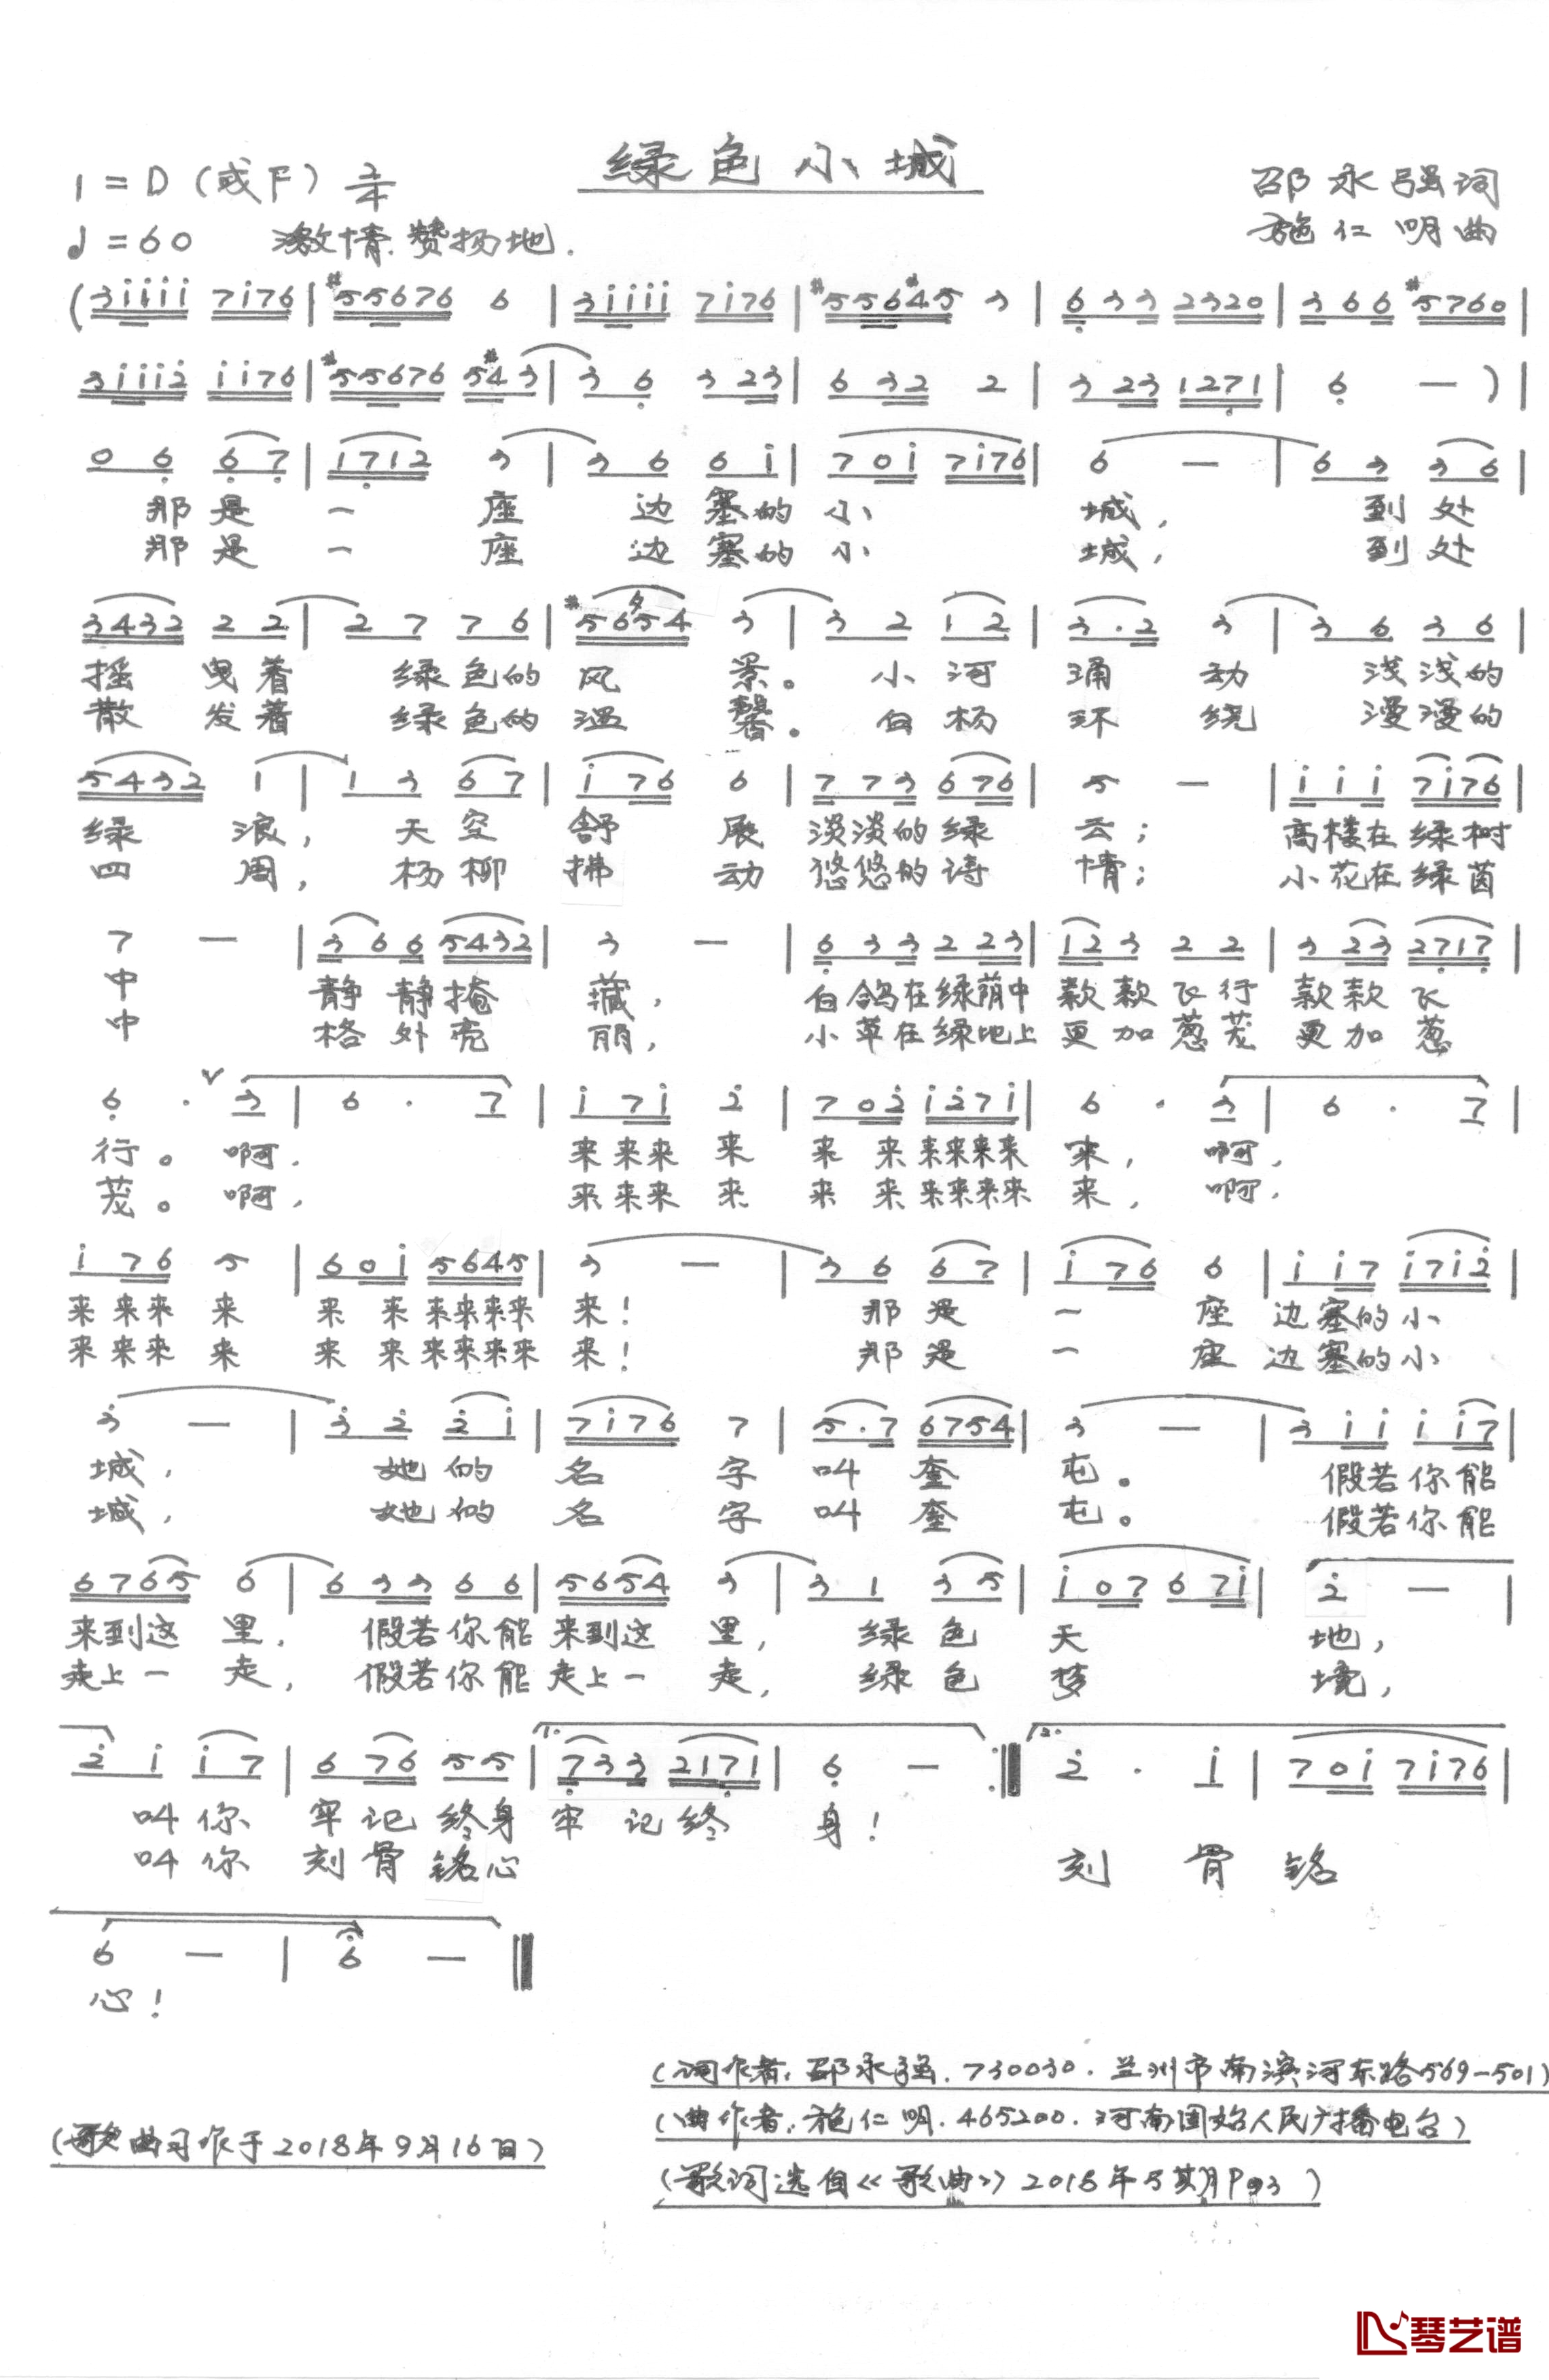 绿色小城
1=D(或F) 2/4
邵永强词
♩=60 激情.赞扬地.
施仁明曲
(3iiii 7i76|#55676 6|3iiii 7i76|#556#45 3|633 2320|366 #5760|
3iii2 ii76|#55676 5#43|3 6 3 23|6 32 2|3 23 1271|6 —)|
0 6 6 7|1712 3|3 6 6 i|7 0i 7i76|6 —|6 3 3 6|
那是一座边塞的小城,到处
那是一座边塞的小城,到处
3432 2 2|2 7 7 6|#5654 3|3 2 1 2|3·2 3|3 6 3 6|
摇曳着绿色的风景。小河涌动浅浅的
散发着绿色的温馨。白杨环绕漫漫的
5432 1|1 3 6 7|i 76 6|773 676|5 —|iii 7i76|
绿浪,天空舒展淡淡的绿云;高楼在绿树
四周,杨柳拂动悠悠的诗情;小花在绿茵
7 —|366 5432|3 —|633 2 23|123 2 2|3 23 2717|
中静静掩藏,白鸽在绿荫中款款飞行款款飞
中格外亮丽,小草在绿地上更加葱茏更加葱
6 · 3|6 · 7|i 7i 2|7 02 i27i|6 · 3|6 · 7|
行。啊.来来来来来来来来来来来,啊,
茏。啊,来来来来来来来来来来来,啊,
i 76 5|6 0i 5645|3 —|3 6 6 7|i 76 6|i i7 i7i2|
来来来来来来来来来来来!那是一座边塞的小
来来来来来来来来来来来!那是一座边塞的小
3 —|3 2 2 i|7i76 7|5·7 6754|3 —|3 ii i i7|
城,她的名字叫奎屯。假若你能
城,她的名字叫奎屯。假若你能
6765 6|633 66|5654 3|3 1 3 5|i 07 6 7i|2 —|
来到这里,假若你能来到这里,绿色天地,
走上一走,假若你能走上一走,绿色梦境,
2 i i 7|6 76 55|1.733 2171|6 —:‖2.2 · i|7 0i 7i76|
叫你牢记终身牢记终身!
叫你刻骨铭心刻骨铭
6 —|6 —‖
心!
(词作者:邵永强.730030.兰州市南滨河东路569-501)
(曲作者:施仁明.465200.河南固始人民广播电台)
(歌曲习作于2018年9月16日)
(歌词选自《歌曲》2018年5期P93)
琴艺谱